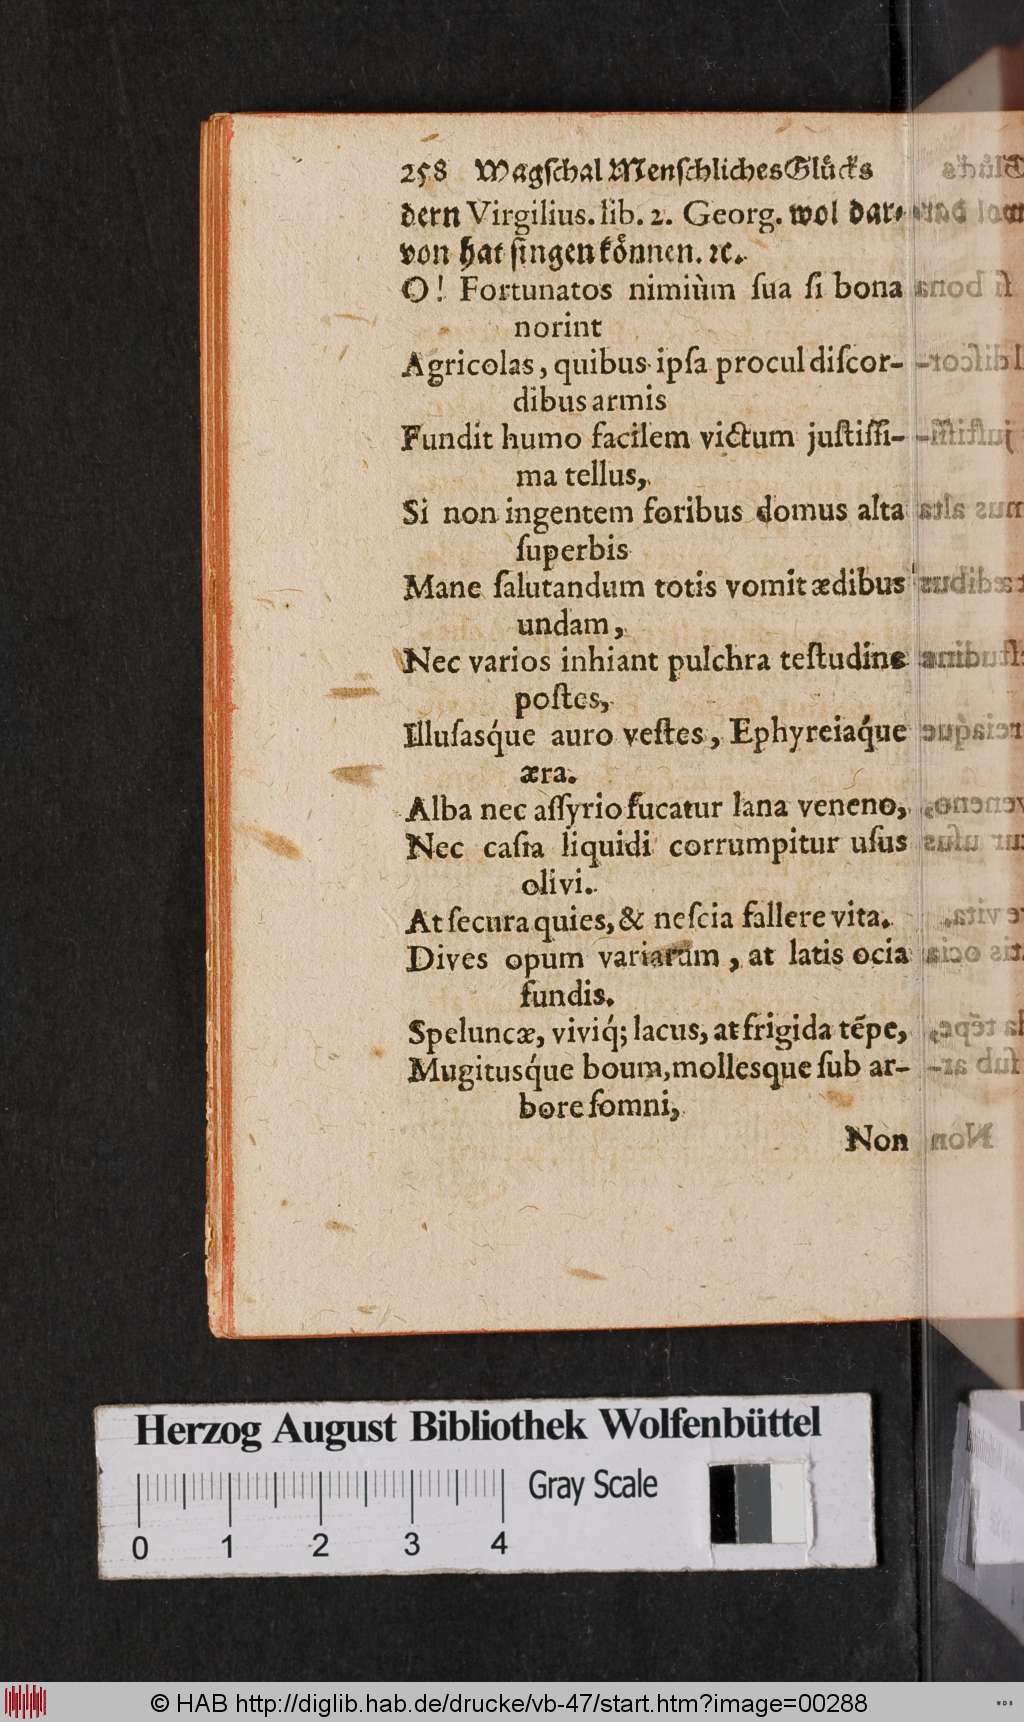 258 Wagſchal Menſchliches Glücks
dern Virgilius. lib. 2. Georg. wol dar⸗
von hat ſingen können. ꝛc.
O! Fortunatos nimiùm ſua ſi bona
norint
Agricolas, quibus ipſa procul diſcor-
dibus armis
Fundit humo facilem victum juſtiſſi-
ma tellus,
Si non ingentem foribus domus alta
ſuperbis
Mane ſalutandum totis vomit ædibus
undam,
Nec varios inhiant pulchra teſtudine
poſtes,
Illuſasq́ue auro veſtes, Ephyreiaq́ue
æra.
Alba nec aſſyrio fucatur lana veneno,
Nec caſia liquidi corrumpitur uſus
olivi.
At ſecura quies, & neſcia fallere vita.
Dives opum variarum, at latis ocia
fundis.
Speluncæ, viviq́; lacus, at frigida tẽpe,
Mugitusq́ue boum, mollesque ſub ar-
bore ſomni,
Non
Herzog August Bibliothek Wolfenbüttel
Gray Scale
0 1 2 3 4
© HAB http://diglib.hab.de/drucke/vb-47/start.htm?image=00288